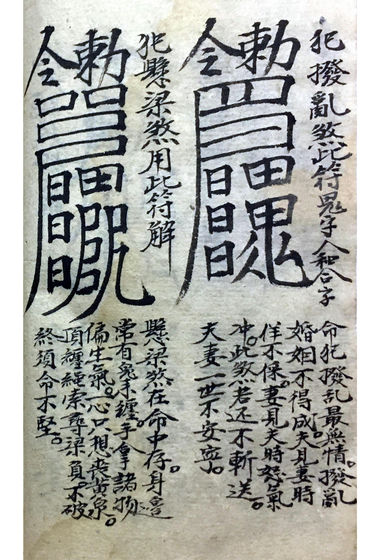 犯撥亂煞此符鬼字人和合字
勅令
命犯撥乱最無情。撥亂
婚姻不得成。夫見妻時
佯不保。妻見夫時怒氣
冲。此煞若还不斬送。
夫妻一世不安寧。
犯懸梁煞用此符解
勅令
懸梁煞。在命中存。身邊
常有鬼手纏。手拿諸物
偏生氣。一心只想丧黄泉。
頂纏繩索尋梁負。不破
終須命不堅。